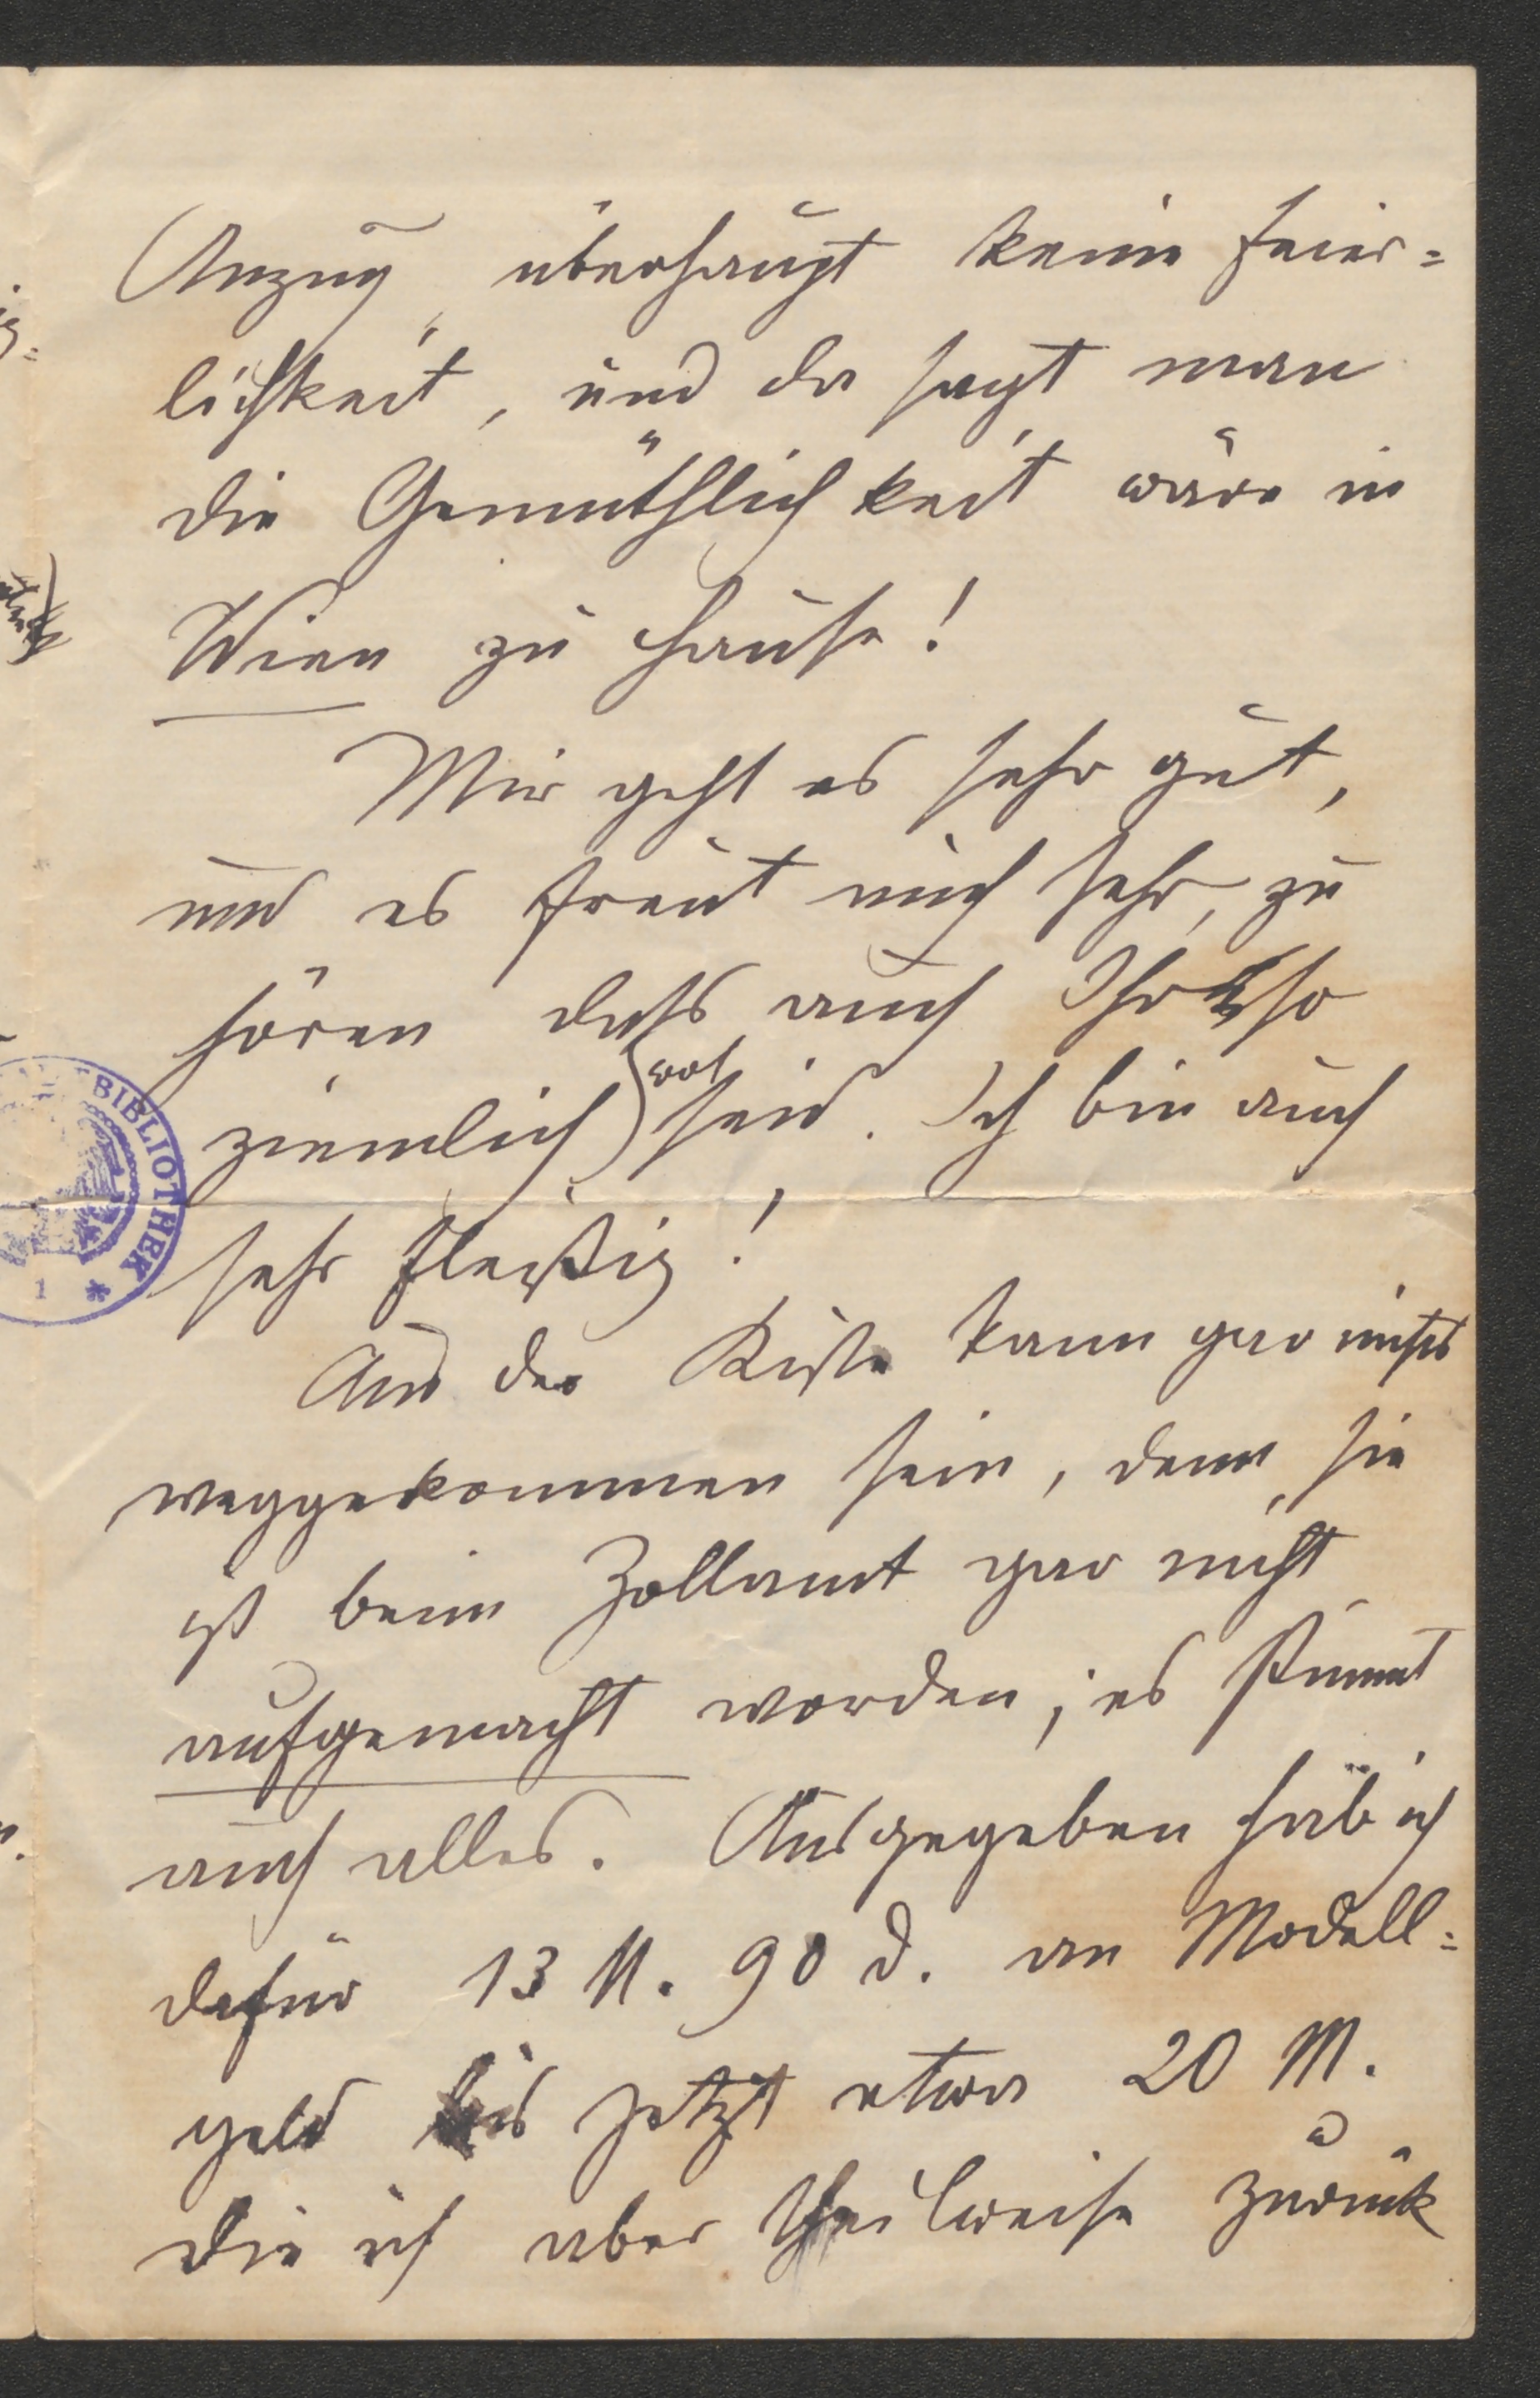 Anzug, überhaupt keine Feier=
lichkeit, und da sagt man
die Gemüthlichkeit wäre in
Wien zu Hause!
Mir geht es sehr gut,
und es freut mich sehr, zu
hören dass auch Ihr so
ziemlich wol seid. Ich bin auch
sehr fleißig!
Aus der Kiste kann gar nichts
weggekommen sein, denn sie
ist beim Zollamt gar nicht
aufgemacht worden; es stimmt
auch alles. Ausgegeben hab ich
dafür 13 M. 90 d. an Modell=
geld bis jetzt etwa 20 M.
die ich aber theilweise zurück
BIBLIOTHEK *
1